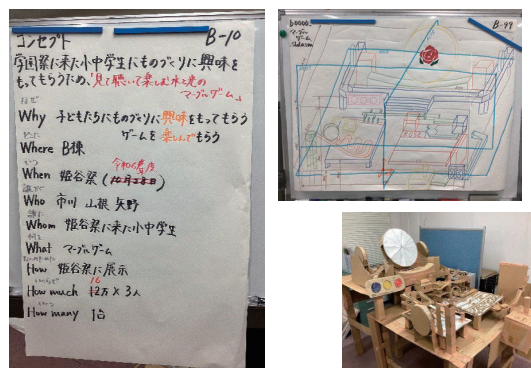 コンセプト
B-10
学園祭に来た小中学生にものづくりに興味を
もってもらうため、「見て聴いて楽しむ木と光の
マーブルゲーム」
なぜ
Why 子どもたちにものづくりに興味をもってもらう
ゲームを楽しんでもらう
どこに
Where B棟
いつ
令和6年度
When 姫谷祭
誰が
Who 市川 山根 矢野
誰に
Whom 姫谷祭に来た小中学生
何を
What マーブルゲーム
How 姫谷祭に展示
16
How much 12万×3人
How many 1台
B-99
マーブル
ゲーム